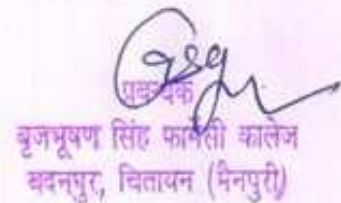 प्रबन्धक
बृजभूषण सिंह फार्मेसी कालेज
बदनपुर, चितायन (मैनपुरी)